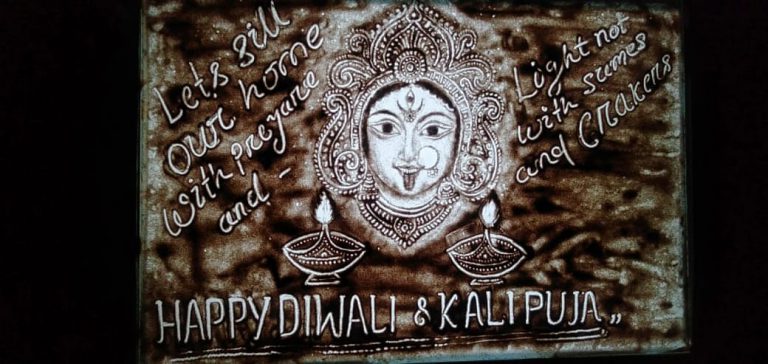 Lets gill
our home
with preyare
and -
Light not
with sumes
and Crakers
HAPPY DIWALI & KALI PUJA,,